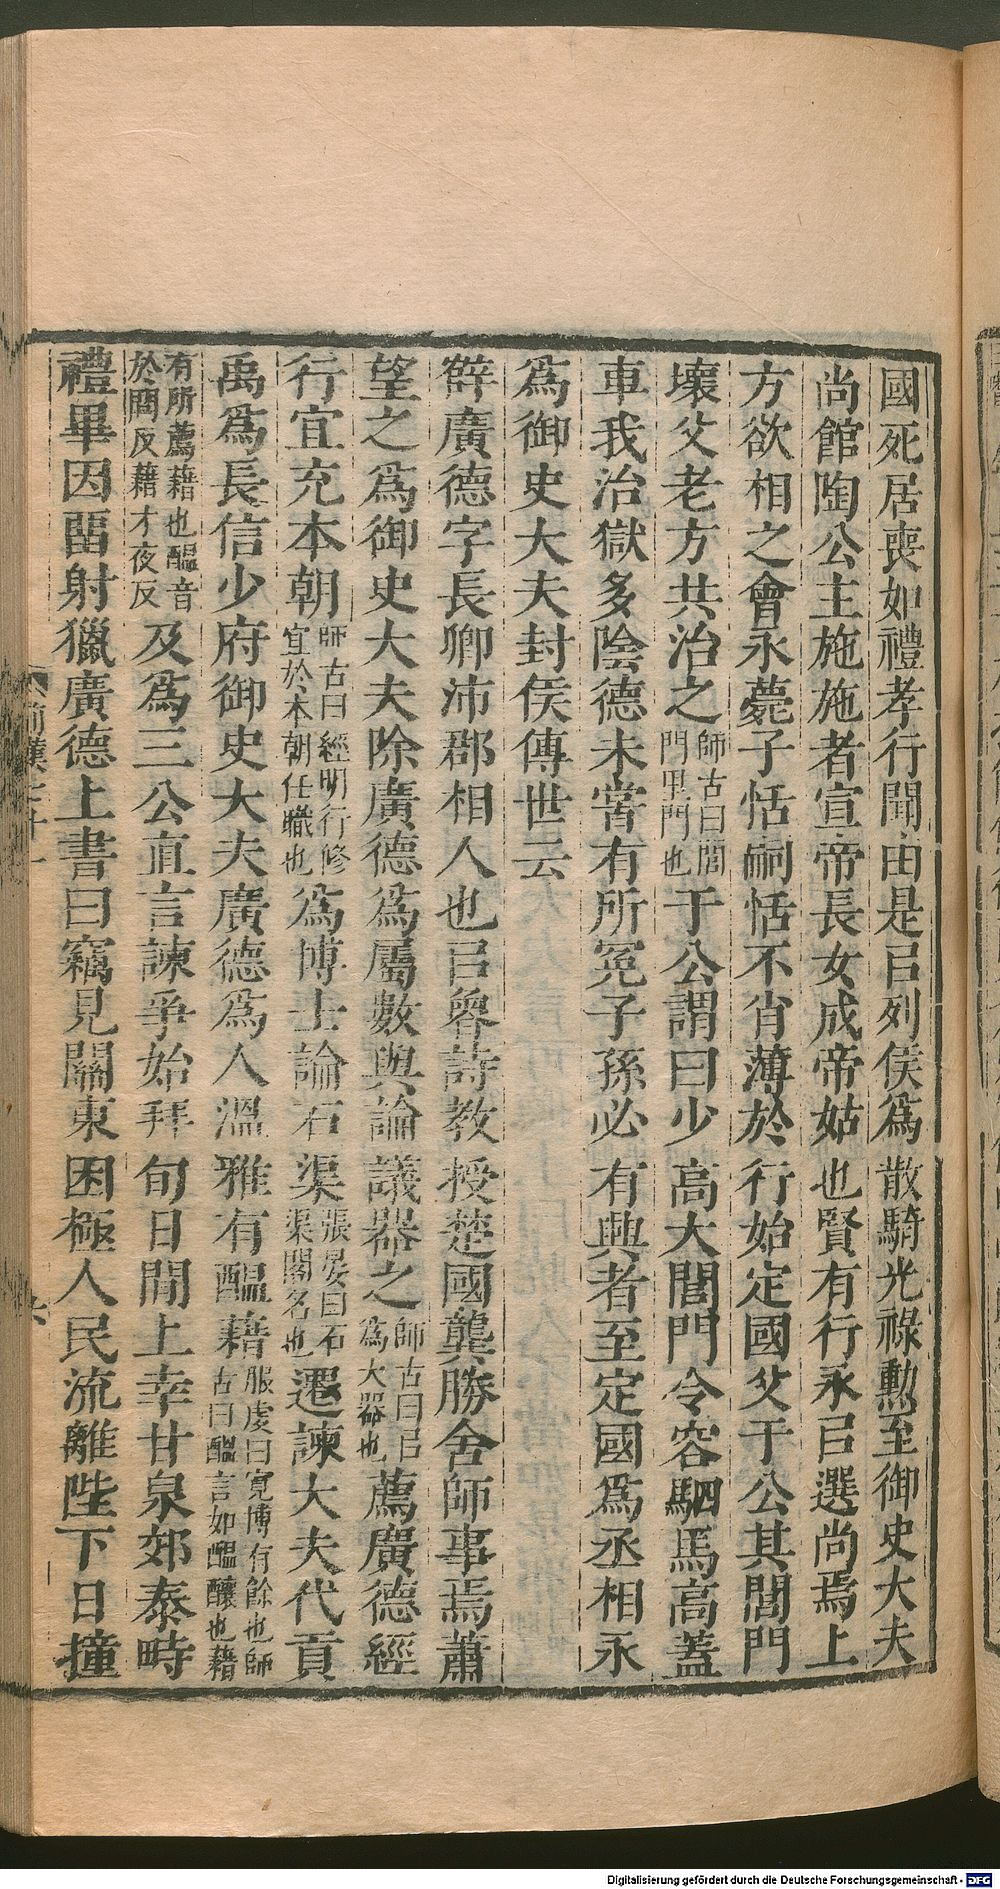 國死居喪如禮孝行聞由是㠯列侯爲散騎光祿勲至御史大夫
尚館陶公主施施者宣帝長女成帝姑也賢有行永㠯選尚焉上
方欲相之會永薨子恬嗣恬不肖薄於行始定國父于公其閭門
壞父老方共治之師古曰閭門里門也于公謂曰少高大閭門令容駟馬高蓋
車我治獄多陰德未甞有所冤子孫必有興者至定國爲丞相永
爲御史大夫封侯傳世云
薛廣德字長卿沛郡相人也㠯魯詩教授楚國龔勝舍師事焉蕭
望之爲御史大夫除廣德爲屬數與論議器之師古曰㠯爲大器也薦廣德經
行宜充本朝師古曰經明行修宜於本朝任職也爲博士論石渠張晏曰石渠閣名也遷諫大夫代貢
禹爲長信少府御史大夫廣德爲人溫雅有醞藉服虔曰寬博有餘也師古曰醞言如醞釀也藉
有所薦藉也醞音於問反藉才夜反及爲三公直言諫爭始拜旬日閒上幸甘泉郊泰畤
禮畢因畱射獵廣德上書曰竊見關東困極人民流離陛下日撞
前漢七十一
六
Digitalisierung gefördert durch die Deutsche Forschungsgemeinschaft - DFG